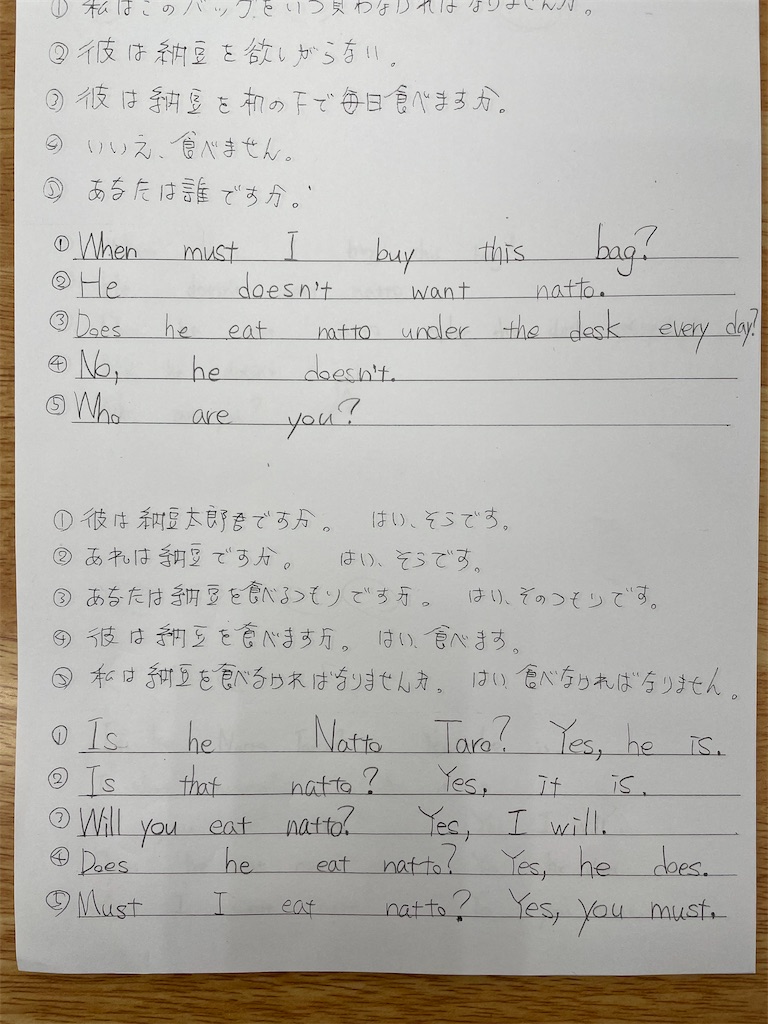 ① 私はこのバッグをいつ買わなければなりませんか。
② 彼は納豆を欲しがらない。
③ 彼は納豆を机の下で毎日食べますか。
④ いいえ、食べません。
⑤ あなたは誰ですか。
① When must I buy this bag?
② He doesn't want natto.
③ Does he eat natto under the desk every day?
④ No, he doesn't.
⑤ Who are you?
① 彼は納豆太郎君ですか。 はい、そうです。
② あれは納豆ですか。 はい、そうです。
③ あなたは納豆を食べるつもりですか。 はい、そのつもりです。
④ 彼は納豆を食べますか。 はい、食べます。
⑤ 私は納豆を食べなければなりませんか。 はい、食べなければなりません。
① Is he Natto Taro? Yes, he is.
② Is that natto? Yes, it is.
③ Will you eat natto? Yes, I will.
④ Does he eat natto? Yes, he does.
⑤ Must I eat natto? Yes, you must.